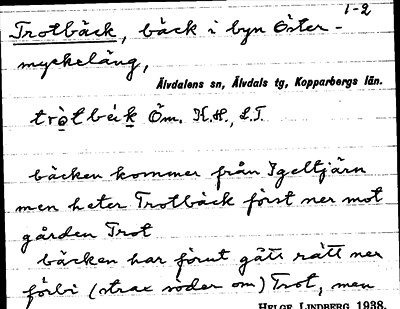 1-2
Trotbäck, bäck i byn Öster-
myckeläng,
Älvdalens sn, Älvdals tg, Kopparbergs län.
Öm. K.H., L.T.
bäcken kommer från Igeltjärn
men heter Trotbäck först ner mot
gården Trot
bäcken har förut gått rätt ner
förbi (strax söder om) Trot, men
HELGE LINDBERG 1938.